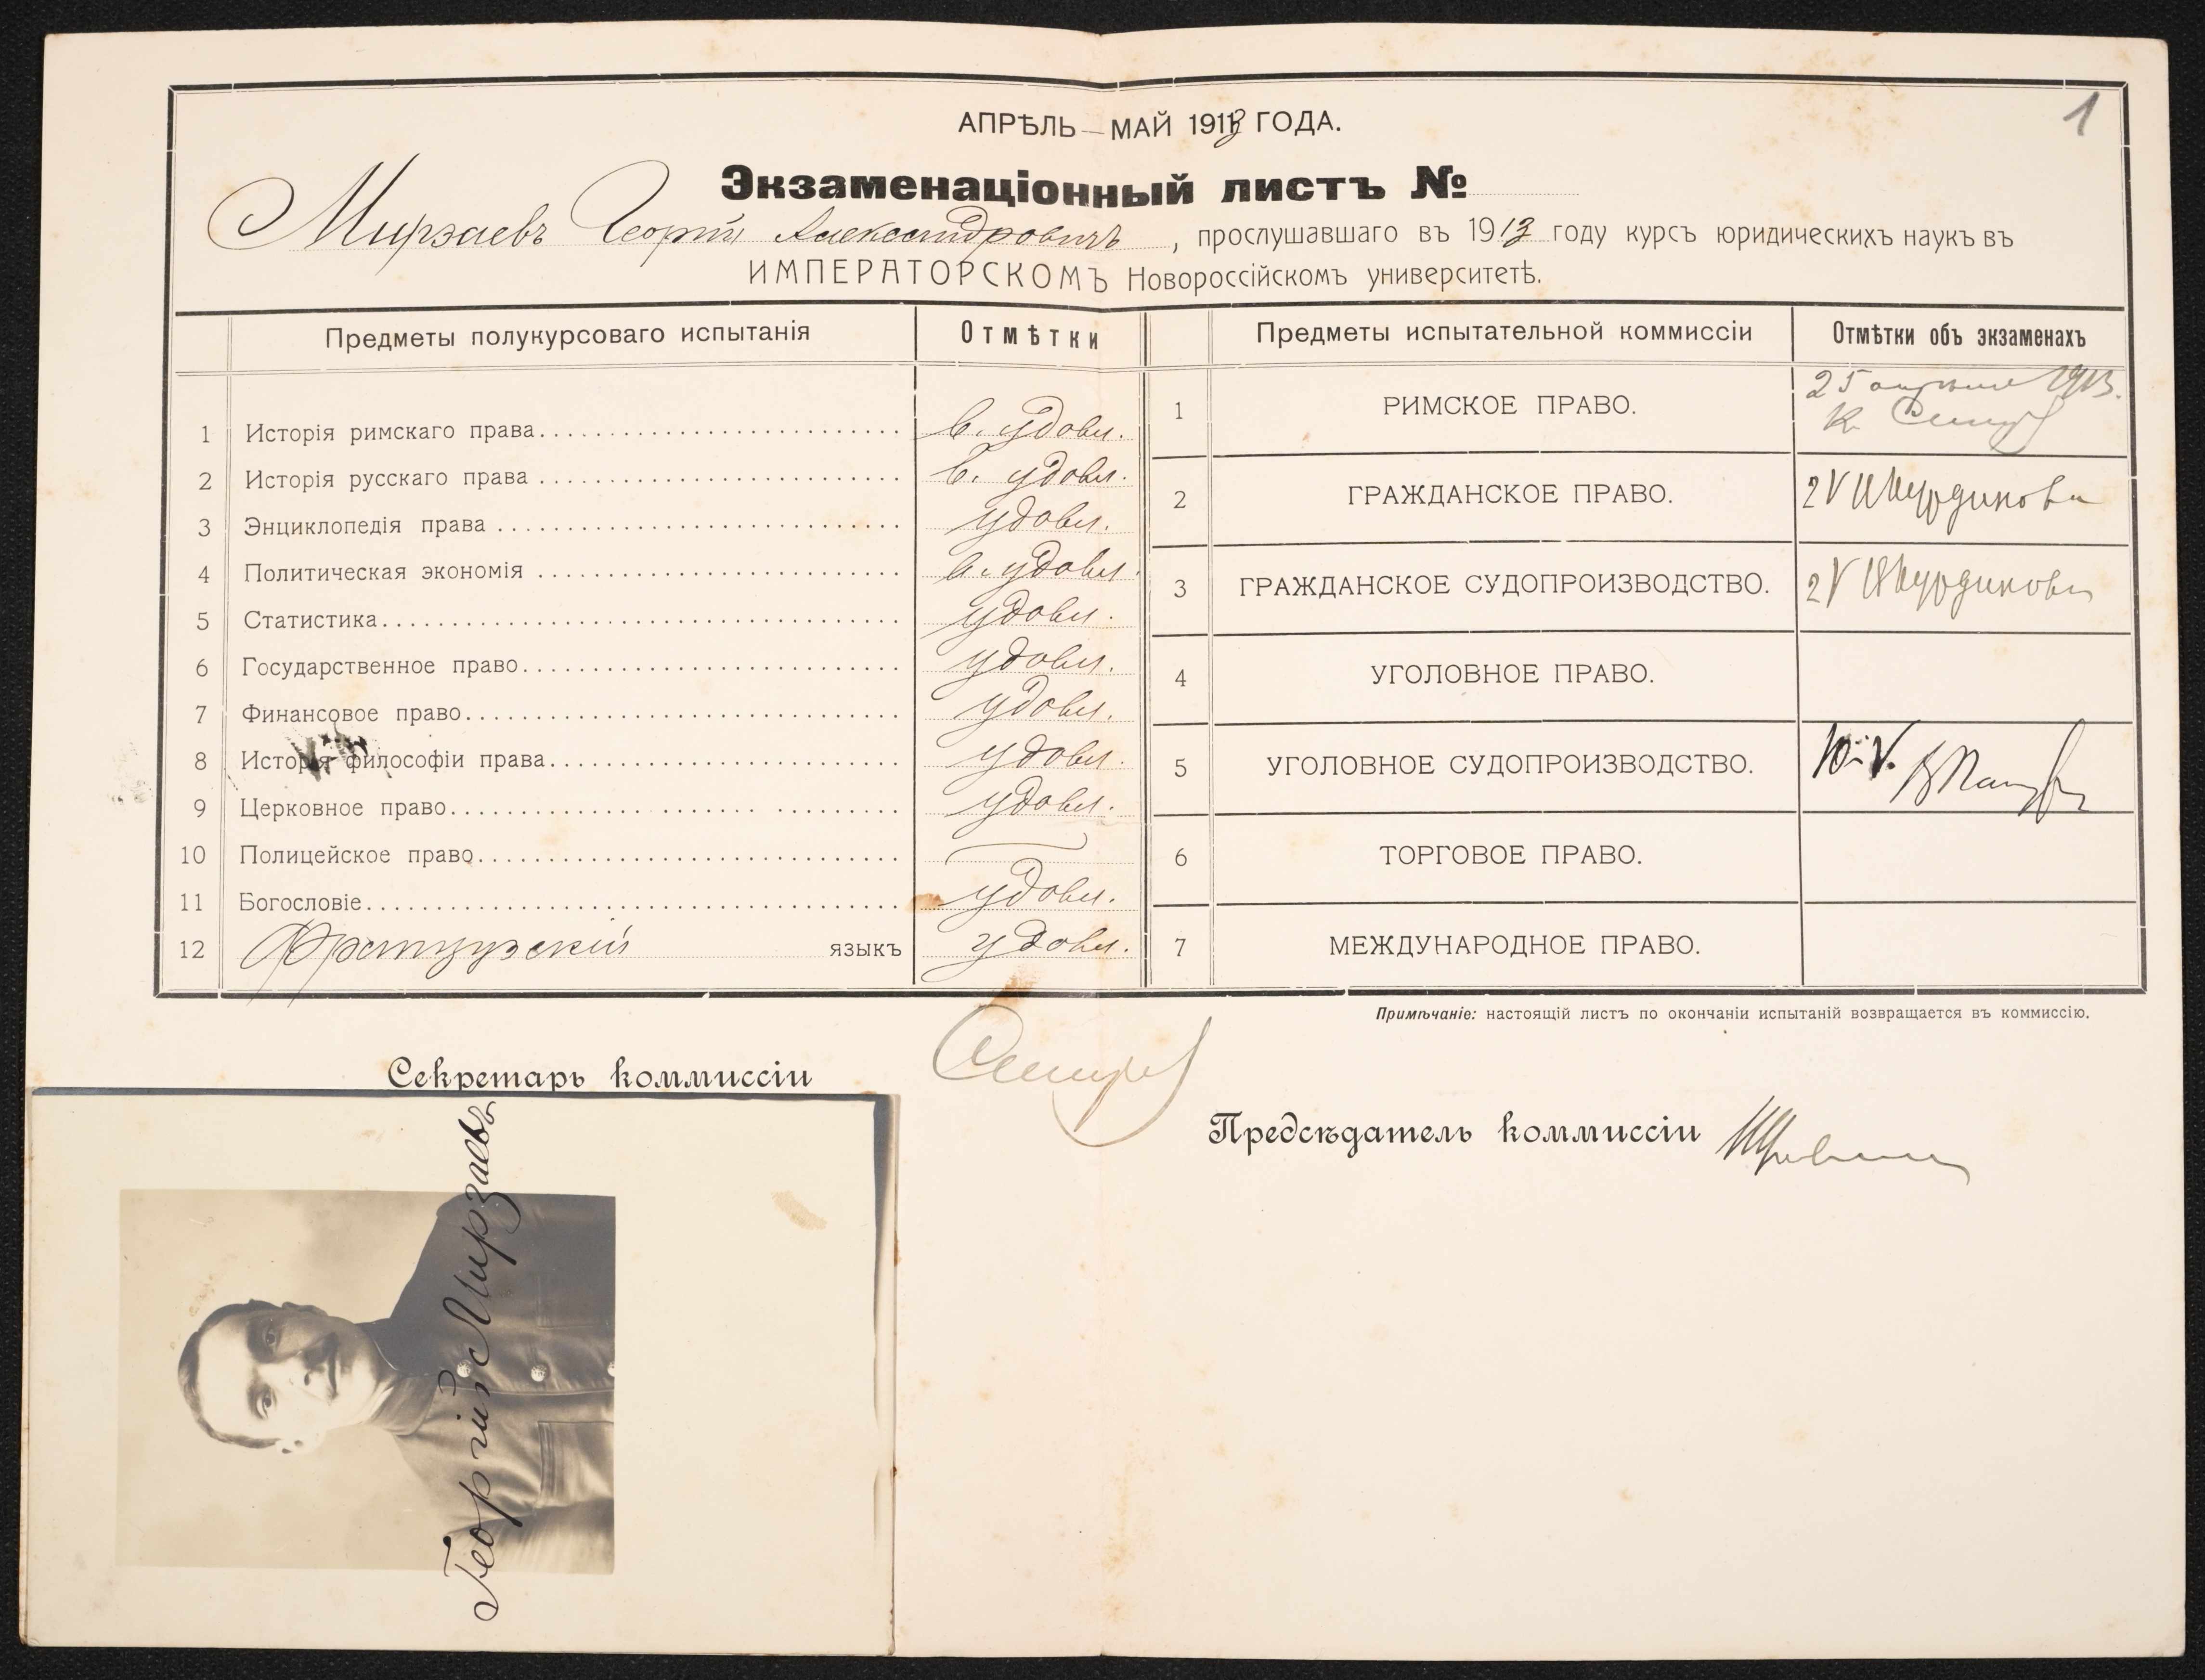 1
АПРѢЛЬ — МАЙ 1913 ГОДА.
Экзаменаціонный листъ №
Мирзаевъ Георгій Александровичъ, прослушавшаго въ 1913 году курсъ юридическихъ наукъ въ
ИМПЕРАТОРСКОМЪ Новороссійскомъ университетѣ.
Предметы полукурсоваго испытанія Отмѣтки
1 Исторія римскаго права в. удовл.
2 Исторія русскаго права в. удовл.
3 Энциклопедія права удовл.
4 Политическая экономія в. удовл.
5 Статистика удовл.
6 Государственное право удовл.
7 Финансовое право удовл.
8 Исторія философіи права удовл.
9 Церковное право удовл.
10 Полицейское право —
11 Богословіе удовл.
12 Французскій языкъ удовл.
Предметы испытательной коммиссіи Отмѣтки объ экзаменахъ
1 РИМСКОЕ ПРАВО. 25 апрѣля 1913.
2 ГРАЖДАНСКОЕ ПРАВО. 2 V
3 ГРАЖДАНСКОЕ СУДОПРОИЗВОДСТВО. 2 V
4 УГОЛОВНОЕ ПРАВО.
5 УГОЛОВНОЕ СУДОПРОИЗВОДСТВО. 10.V.
6 ТОРГОВОЕ ПРАВО.
7 МЕЖДУНАРОДНОЕ ПРАВО.
Примѣчаніе: настоящій листъ по окончаніи испытаній возвращается въ коммиссію.
Секретарь коммиссіи
Предсѣдатель коммиссіи
Георгій Мирзаевъ